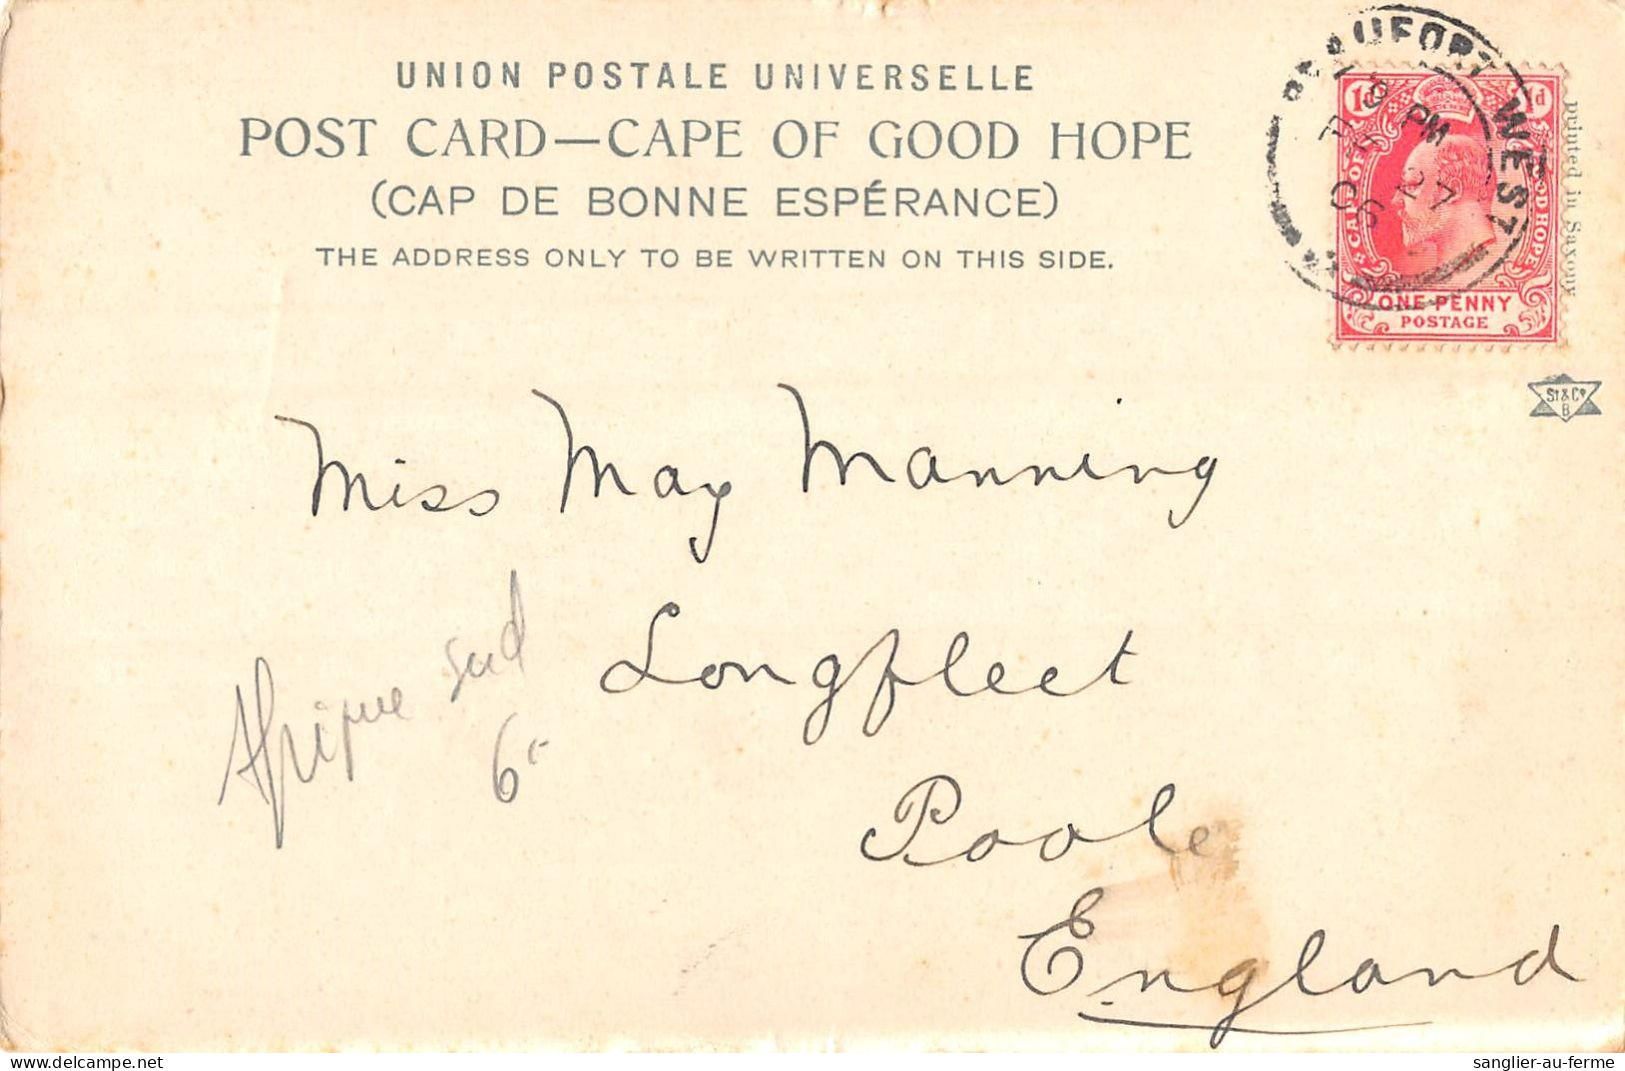 UNION POSTALE UNIVERSELLE
POST CARD—CAPE OF GOOD HOPE
(CAP DE BONNE ESPÉRANCE)
THE ADDRESS ONLY TO BE WRITTEN ON THIS SIDE.
BEAUFORT WEST
PM
27
1d 1d
CAPE OF GOOD HOPE
ONE PENNY
POSTAGE
printed in Saxony
St & Co
B
Miss May Manning
Longfleet
Poole
England
Afrique sud
6
sanglier-au-ferme